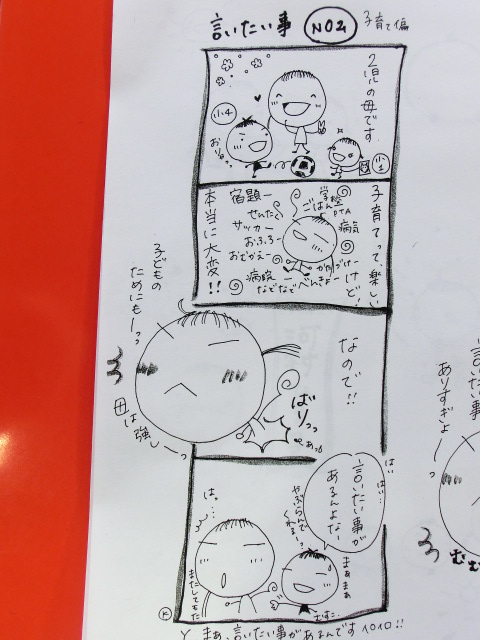 言いたい事 NO2 子育て編
2児の母です。
小4
おりゃっ
小1
子育てって、楽しい
けど!
学校
PTA
ごはん
宿題ー
せんたく
サッカー
おふろー
おむかえー
病気
かたづけー
病院ー
べんきょー
なでなで
本当に大変!!
なので!!
子どもの
ためにもーっっ
母は強しーっ
ばりっっ
あっ
はい
はい…
言いたい事が
あるんよな〜
やぶらんで
くれるー?
まぁまぁ
はっ…
またしてもた
むすこ
まぁ、言いたい事があるんです
言いたい事
ありすぎよーっ